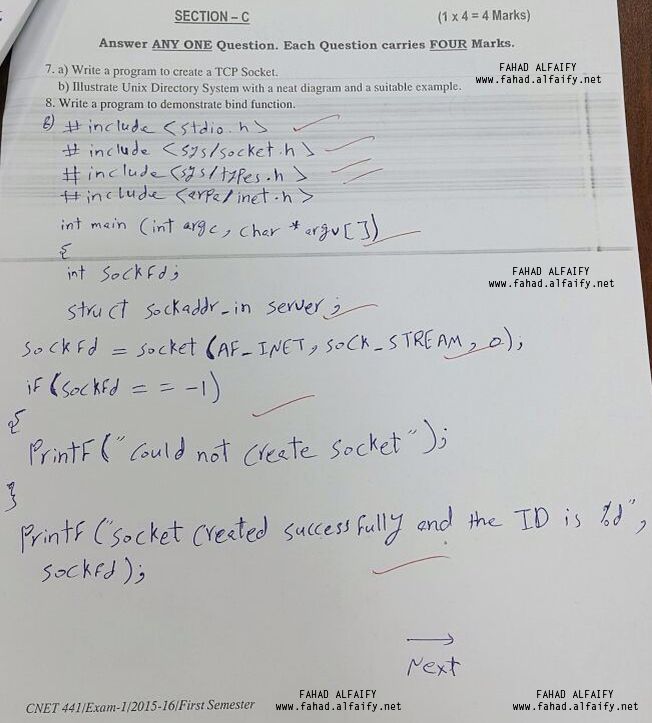 SECTION – C (1 x 4 = 4 Marks)
Answer ANY ONE Question. Each Question carries FOUR Marks.
7. a) Write a program to create a TCP Socket.
FAHAD ALFAIFY
www.fahad.alfaify.net
b) Illustrate Unix Directory System with a neat diagram and a suitable example.
8. Write a program to demonstrate bind function.
8) #include <stdio.h>
#include <sys/socket.h>
#include <sys/types.h>
#include <arpa/inet.h>
int main (int argc, char *argv[])
{
int sockfd;
FAHAD ALFAIFY
www.fahad.alfaify.net
struct sockaddr_in server;
sockfd = socket (AF_INET, SOCK_STREAM, 0);
if (sockfd = = -1)
{
Printf ("Could not create socket");
}
Printf ("socket created successfully and the ID is %d",
sockfd);
Next
CNET 441/Exam-1/2015-16/First Semester
FAHAD ALFAIFY
www.fahad.alfaify.net
FAHAD ALFAIFY
www.fahad.alfaify.net